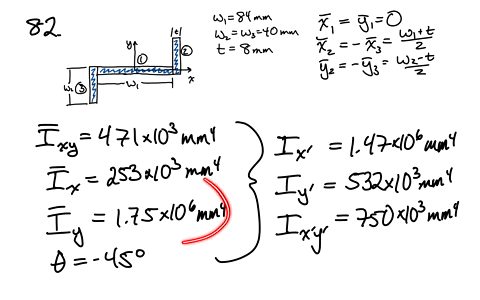 82.
w₁ = 84 mm
w₂ = w₃ = 40 mm
t = 8 mm
x̄₁ = ȳ₁ = 0
x̄₂ = -x̄₃ = (w₁+t)/2
ȳ₂ = -ȳ₃ = (w₂-t)/2
|t|
y
①
②
x
w₃ ③
w₁
Ī_xy = 471×10³ mm⁴
Ī_x = 253×10³ mm⁴
Ī_y = 1.75×10⁶ mm⁴
θ = -45°
I_x' = 1.47×10⁶ mm⁴
I_y' = 532×10³ mm⁴
I_x'y' = 750×10³ mm⁴